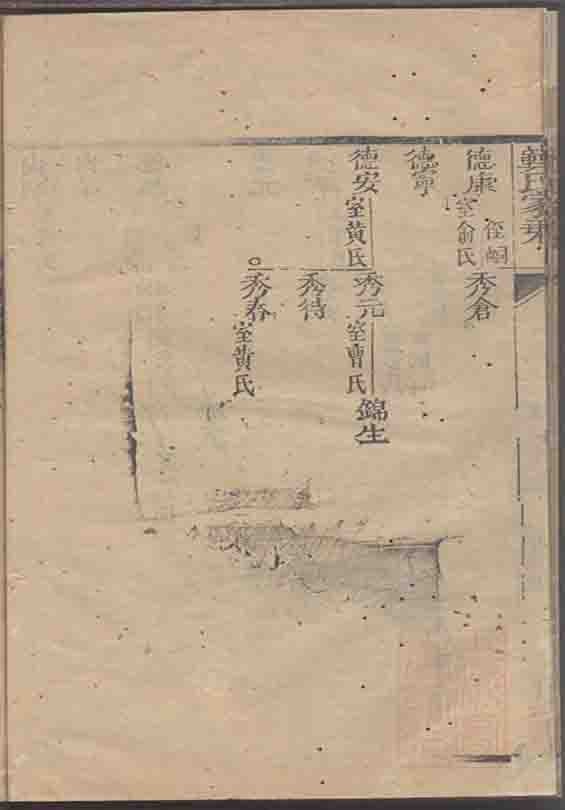 氏家乘
德康
室俞氏
侄嗣
秀倉
德寧
德安
室黄氏
秀元
室曹氏
錦生
秀待
秀春
室黄氏